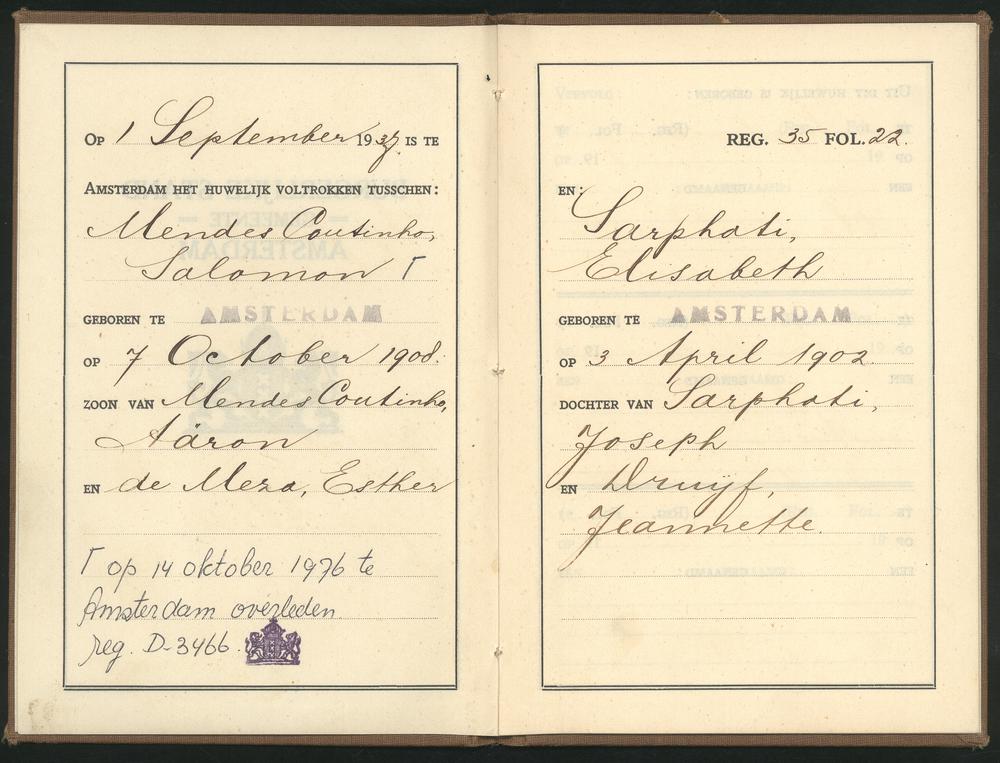 Op 1 September 1937 is te
Amsterdam het huwelijk voltrokken tusschen:
Mendes Coutinho,
Salomon Γ
geboren te AMSTERDAM
op 7 October 1908.
zoon van Mendes Coutinho,
Aäron
en de Meza, Esther
Γ op 14 oktober 1976 te
Amsterdam overleden.
reg. D-3466.
REG. 35 FOL. 22.
en:
Sarphati,
Elisabeth
geboren te AMSTERDAM
op 3 April 1902
dochter van Sarphati,
Joseph
en Druijf,
Jeannette.